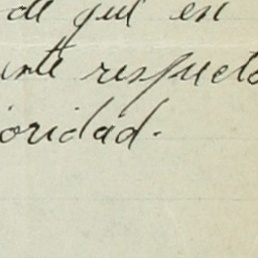 de que en
ante respeto
oridad.